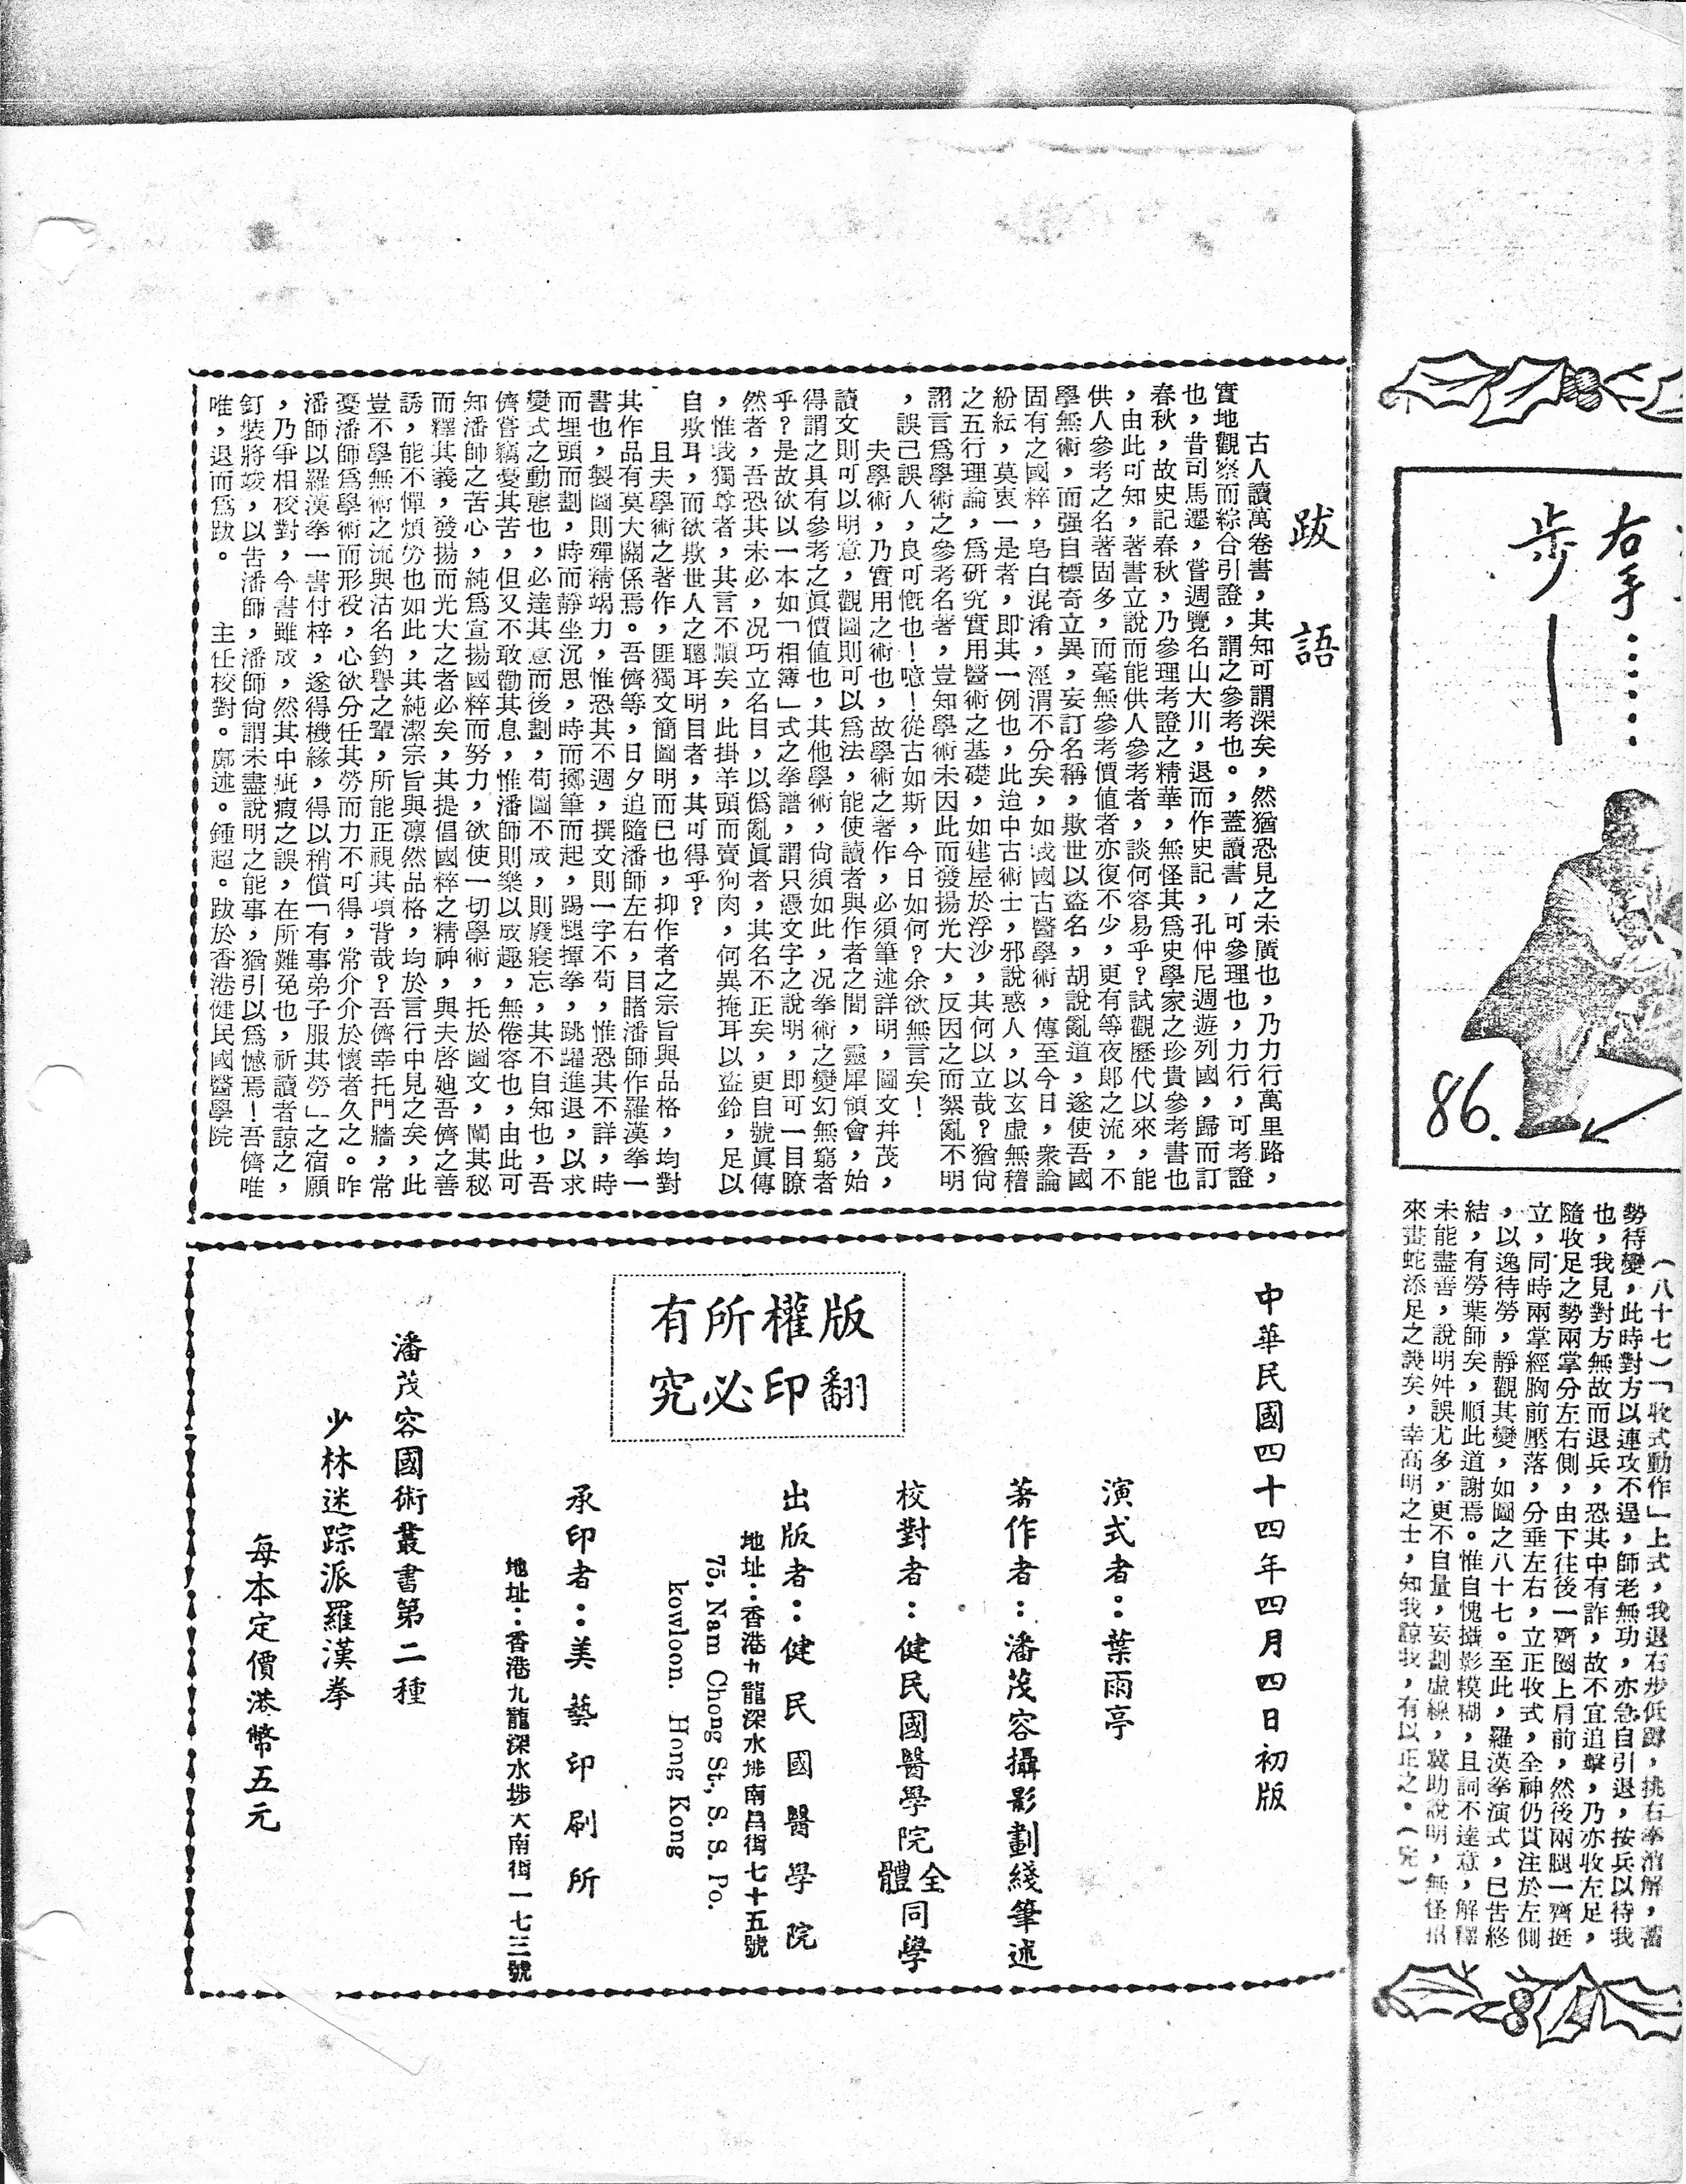 右手……
步—
86.
（八十七）「收式動作」上式，我退右步低蹲，挑右拳消解，蓄
勢待變，此時對方以連攻不逞，師老無功，亦急自引退，按兵以待我
也，我見對方無故而退兵，恐其中有詐，故不宜追擊，乃亦收左足，
隨收足之勢兩掌分左右側，由下往後一齊圈上肩前，然後兩腿一齊挺
立，同時兩掌經胸前壓落，分垂左右，立正收式，全神仍貫注於左側
，以逸待勞，靜觀其變，如圖之八十七。至此，羅漢拳演式，已告終
結，有勞葉師矣，順此道謝焉。惟自愧攝影糢糊，且詞不達意，解釋
未能盡善，說明舛誤尤多，更不自量，妄劃虛線，冀助說明，無怪招
來畫蛇添足之譏矣，幸高明之士，知我諒我，有以正之。（完）
跋語
古人讀萬卷書，其知可謂深矣，然猶恐見之未廣也，乃力行萬里路，
實地觀察而綜合引證，謂之參考也。，蓋讀書，可參理也，力行，可考證
也，昔司馬遷，嘗週覽名山大川，退而作史記，孔仲尼週遊列國，歸而訂
春秋，故史記春秋，乃參理考證之精華，無怪其爲史學家之珍貴參考書也
，由此可知，著書立說而能供人參考者，談何容易乎？試觀歷代以來，能
供人參考之名著固多，而毫無參考價值者亦復不少，更有等夜郎之流，不
學無術，而强自標奇立異，妄訂名稱，欺世以盜名，胡說亂道，遂使吾國
固有之國粹，皂白混淆，涇渭不分矣，如我國古醫學術，傳至今日，衆論
紛紜，莫衷一是者，即其一例也，此迨中古術士，邪說惑人，以玄虛無稽
之五行理論，爲研究實用醫術之基礎，如建屋於浮沙，其何以立哉？猶尙
謂言爲學術之參考名著，豈知學術未因此而發揚光大，反因之而絮亂不明
，誤己誤人，良可慨也！噫！從古如斯，今日如何？余欲無言矣！
夫學術，乃實用之術也，故學術之著作，必須筆述詳明，圖文幷茂，
讀文則可以明意，觀圖則可以爲法，能使讀者與作者之間，靈犀領會，始
得謂之具有參考之眞價値也，其他學術，尙須如此，况拳術之變幻無窮者
乎？是故欲以一本如「相簿」式之拳譜，謂只憑文字之說明，即可一目瞭
然者，吾恐其未必，况巧立名目，以僞亂眞者，其名不正矣，更自號眞傳
，惟我獨尊者，其言不順矣，此掛羊頭而賣狗肉，何異掩耳以盜鈴，足以
自欺耳，而欲欺世人之聰耳明目者，其可得乎？
且夫學術之著作，匪獨文簡圖明而已也，抑作者之宗旨與品格，均對
其作品有莫大關係焉。吾儕等，日夕追隨潘師左右，目睹潘師作羅漢拳一
書也，製圖則殫精竭力，惟恐其不週，撰文則一字不苟，惟恐其不詳，時
而埋頭而劃，時而靜坐沉思，時而擲筆而起，踢腿揮拳，跳躍進退，以求
變式之動態也，必達其意而後劃，苟圖不成，則廢寢忘，其不自知也，吾
儕嘗竊憂其苦，但又不敢勸其息，惟潘師則樂以成趣，無倦容也，由此可
知潘師之苦心，純爲宣揚國粹而努力，欲使一切學術，托於圖文，闡其秘
而釋其義，發揚而光大之者必矣，其提倡國粹之精神，與夫啓廸吾儕之善
誘，能不憚煩勞也如此，其純潔宗旨與凛然品格，均於言行中見之矣，此
豈不學無術之流與沽名釣譽之輩，所能正視其項背哉？吾儕幸托門牆，常
憂潘師爲學術而形役，心欲分任其勞而力不可得，常介介於懷者久之。昨
潘師以羅漢拳一書付梓，遂得機緣，得以稍償「有事弟子服其勞」之宿願
，乃爭相校對，今書雖成，然其中疵瑕之誤，在所難免也，祈讀者諒之，
釘裝將竣，以告潘師，潘師尙謂未盡說明之能事，猶引以爲憾焉！吾儕唯
唯，退而爲跋。　主任校對。鄺述。鍾超。跋於香港健民國醫學院
中華民國四十四年四月四日初版
演式者：葉雨亭
著作者：潘茂容攝影劃綫筆述
校對者：健民國醫學院全體同學
版權所有
翻印必究
出版者：健民國醫學院
地址：香港九龍深水埗南昌街七十五號
75, Nam Chong St., S. S. Po.
kowloon. Hong Kong
承印者：美藝印刷所
地址：香港九龍深水埗大南街一七三號
潘茂容國術叢書第二種
少林迷踪派羅漢拳
每本定價港幣五元